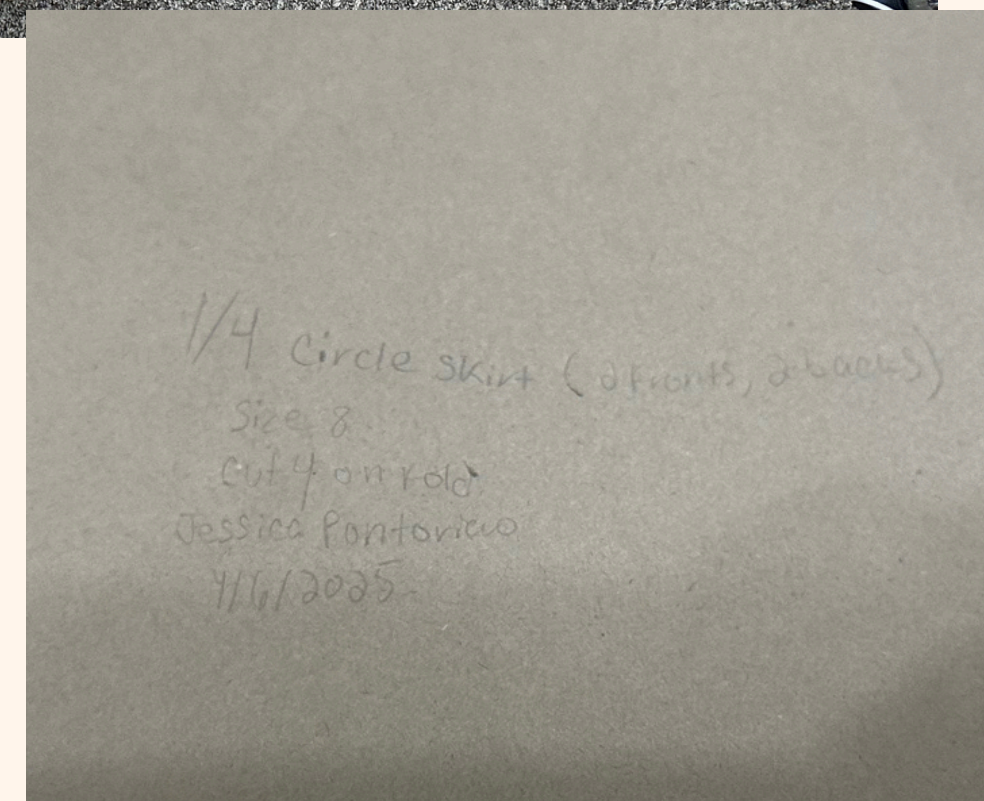 1/4 Circle skirt (2 fronts, 2 backs)
Size 8
Cut 4 on fold
Jessica
4/6/2025